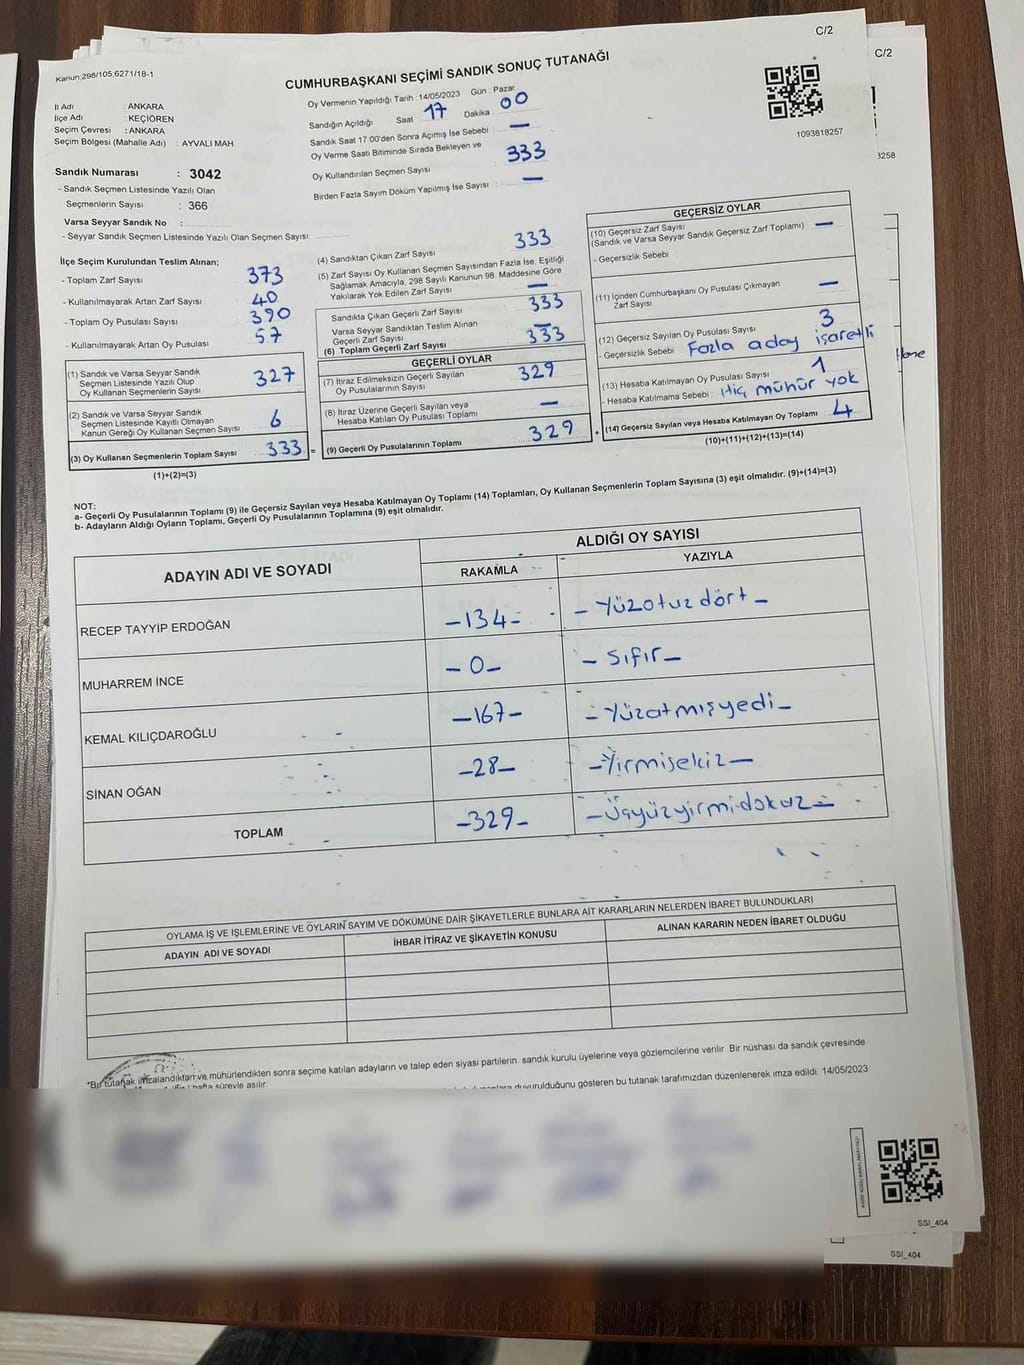 C/2
C/2
Kanun:298/105,6271/18-1
CUMHURBAŞKANI SEÇİMİ SANDIK SONUÇ TUTANAĞI
İl Adı : ANKARA
İlçe Adı : KEÇİÖREN
Seçim Çevresi : ANKARA
Seçim Bölgesi (Mahalle Adı) : AYVALI MAH
Oy Vermenin Yapıldığı Tarih : 14/05/2023 Gün : Pazar
Sandığın Açıldığı Saat 17 Dakika 00
Sandık Saat 17:00'den Sonra Açımış İse Sebebi : —
Oy Verme Saati Bitiminde Sırada Bekleyen ve
Oy Kullandırılan Seçmen Sayısı 333
Birden Fazla Sayım Döküm Yapılmış İse Sayısı : —
1093818257
3258
Sandık Numarası : 3042
- Sandık Seçmen Listesinde Yazılı Olan
Seçmenlerin Sayısı : 366
Varsa Seyyar Sandık No :
- Seyyar Sandık Seçmen Listesinde Yazılı Olan Seçmen Sayısı:
İlçe Seçim Kurulundan Teslim Alınan;
- Toplam Zarf Sayısı 373
- Kullanılmayarak Artan Zarf Sayısı 40
- Toplam Oy Pusulası Sayısı 390
- Kullanılmayarak Artan Oy Pusulası 57
(1) Sandık ve Varsa Seyyar Sandık
Seçmen Listesinde Yazılı Olup
Oy Kullanan Seçmenlerin Sayısı 327
(2) Sandık ve Varsa Seyyar Sandık
Seçmen Listesinde Kayıtlı Olmayan
Kanun Gereği Oy Kullanan Seçmen Sayısı 6
(3) Oy Kullanan Seçmenlerin Toplam Sayısı 333 =
(1)+(2)=(3)
(4) Sandıktan Çıkan Zarf Sayısı 333
(5) Zarf Sayısı Oy Kullanan Seçmen Sayısından Fazla İse, Eşitliği
Sağlamak Amacıyla, 298 Sayılı Kanunun 98. Maddesine Göre
Yakılarak Yok Edilen Zarf Sayısı —
Sandıkta Çıkan Geçerli Zarf Sayısı 333
Varsa Seyyar Sandıktan Teslim Alınan
Geçerli Zarf Sayısı —
(6) Toplam Geçerli Zarf Sayısı 333
GEÇERLİ OYLAR
(7) İtiraz Edilmeksizin Geçerli Sayılan
Oy Pusulalarının Sayısı 329
(8) İtiraz Üzerine Geçerli Sayılan veya
Hesaba Katılan Oy Pusulası Toplamı —
(9) Geçerli Oy Pusulalarının Toplamı 329 +
GEÇERSİZ OYLAR
(10) Geçersiz Zarf Sayısı
(Sandık ve Varsa Seyyar Sandık Geçersiz Zarf Toplamı) —
- Geçersizlik Sebebi :
(11) İçinden Cumhurbaşkanı Oy Pusulası Çıkmayan
Zarf Sayısı —
(12) Geçersiz Sayılan Oy Pusulası Sayısı 3
- Geçersizlik Sebebi : Fazla aday işaretli
(13) Hesaba Katılmayan Oy Pusulası Sayısı 1
- Hesaba Katılmama Sebebi : Hiç mühür yok
(14) Geçersiz Sayılan veya Hesaba Katılmayan Oy Toplamı 4
(10)+(11)+(12)+(13)=(14)
NOT:
a- Geçerli Oy Pusulalarının Toplamı (9) ile Geçersiz Sayılan veya Hesaba Katılmayan Oy Toplamı (14) Toplamları, Oy Kullanan Seçmenlerin Toplam Sayısına (3) eşit olmalıdır. (9)+(14)=(3)
b- Adayların Aldığı Oyların Toplamı, Geçerli Oy Pusulalarının Toplamına (9) eşit olmalıdır.
ADAYIN ADI VE SOYADI
ALDIĞI OY SAYISI
RAKAMLA YAZIYLA
RECEP TAYYİP ERDOĞAN -134- -Yüzotuzdört-
MUHARREM İNCE -0- -Sıfır-
KEMAL KILIÇDAROĞLU -167- -Yüzatmışyedi-
SİNAN OĞAN -28- -Yirmisekiz-
TOPLAM -329- -Üçyüzyirmidokuz-
OYLAMA İŞ VE İŞLEMLERİNE VE OYLARIN SAYIM VE DÖKÜMÜNE DAİR ŞİKAYETLERLE BUNLARA AİT KARARLARIN NELERDEN İBARET BULUNDUKLARI
ADAYIN ADI VE SOYADI İHBAR İTİRAZ VE ŞİKAYETİN KONUSU ALINAN KARARIN NEDEN İBARET OLDUĞU
*Bu tutanak imzalandıktan ve mühürlendikten sonra seçime katılan adayların ve talep eden siyasi partilerin sandık kurulu üyelerine veya gözlemcilerine verilir. Bir nüshası da sandık çevresinde
hafta süreyle asılır.
duyurulduğunu gösteren bu tutanak tarafımızdan düzenlenerek imza edildi. 14/05/2023
SSI_404
SSI_404